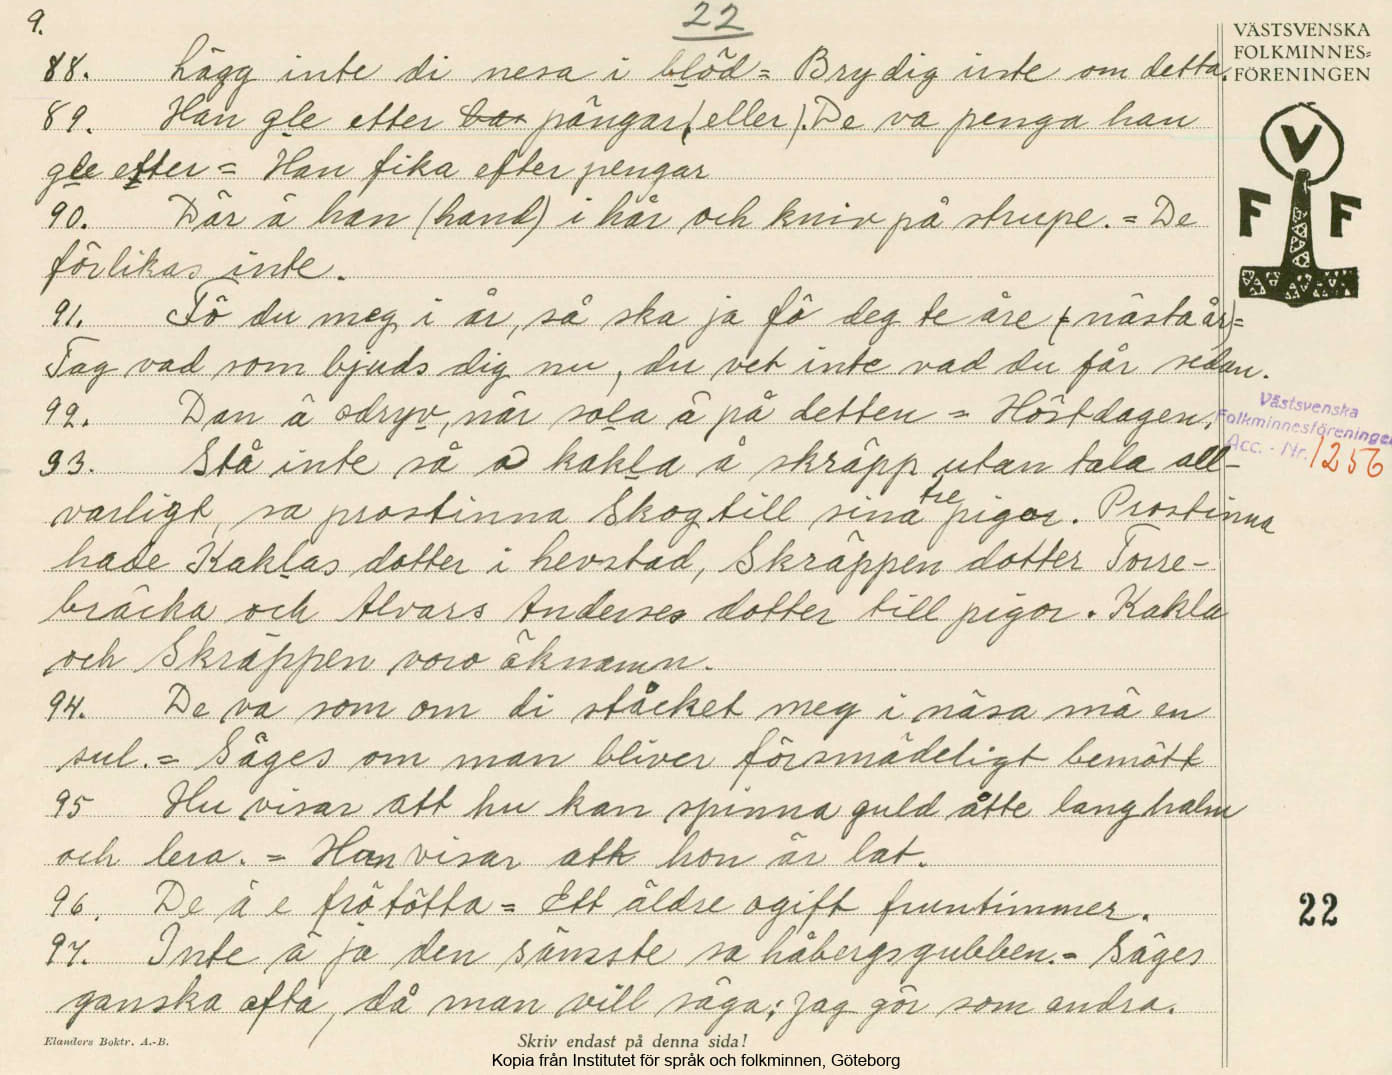 9.
22
VÄSTSVENSKA
FOLKMINNES=
FÖRENINGEN
88. Lägg inte di nesa i blöd = Bry dig inte om detta.
89. Han gle etter pängar (eller). De va penga han
gle efter = Han fika efter pengar
90. Där ä han (hand) i hår och kniv på strupe. = De
förlikas inte.
91. Fö du meg i år, så ska ja fö deg te åre (= nästa år) =
Tag vad som bjuds dig nu, du vet inte vad du får sedan.
92. Dan ä sdryv, när sola ä på detten = Höstdagen.
93. Stå inte så å kakla å skräpp utan tala all-
varligt, sa prostinna Skog till sina tre pigor. Prostinna
hade Kaklas dotter i hevstad, Skräppen dotter Torre-
bräcka och Alvars Anderses dotter till pigor. Kakla
och Skräppen voro öknamn.
94. De va som om di ståcket meg i näsa mä en
sul. = Säges om man bliver försmädeligt bemött
95 Hu visar att hu kan spinna guld åtte langhalm
och lera. = Hon visar att hon är lat.
96. De ä e frötötta = Ett äldre ogift fruntimmer.
97. Inte ä ja den sämste sa håbergsgubben. = Säges
ganska ofta, då man vill säga; jag gör som andra.
V
F F
Västsvenska
Folkminnesföreningen
Acc. - Nr. 1256
22
Elanders Boktr. A.-B.
Skriv endast på denna sida!
Kopia från Institutet för språk och folkminnen, Göteborg